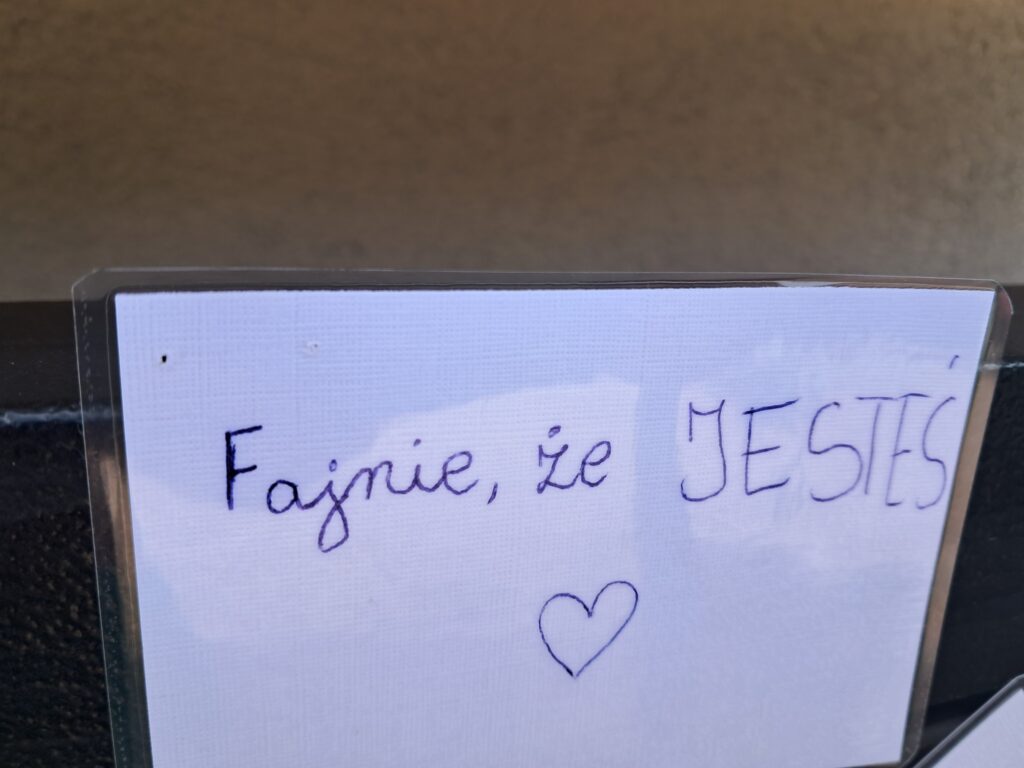 Fajnie, że JESTEŚ